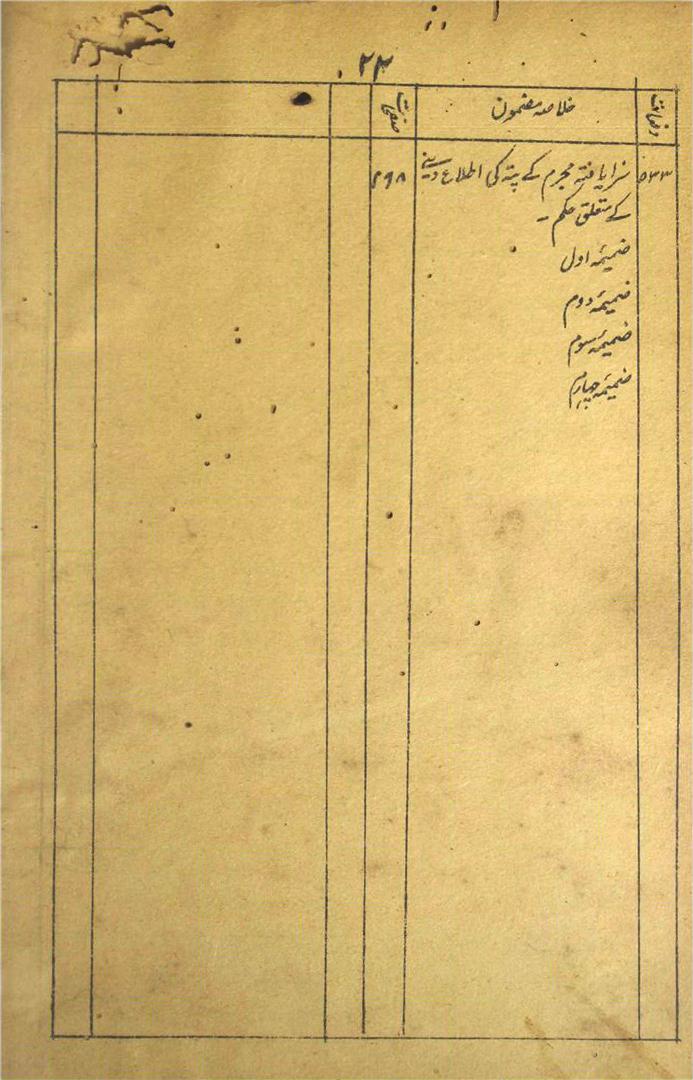 ۲۲
دفعات خلاصہ مضمون صفحات
۵۳۳ سزا یافتہ مجرم کے پتہ کی اطلاع دینے ۲۹۸
کے متعلق حکم ۔
ضمیمہ اول
ضمیمہ دوم
ضمیمہ سوم
ضمیمہ چہارم